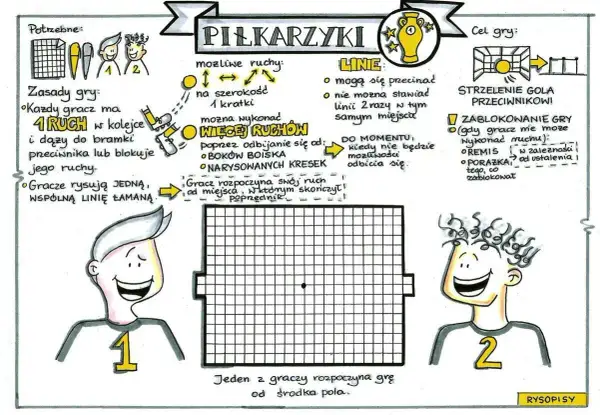 PIŁKARZYKI
Potrzebne:
1
2
Zasady gry:
Każdy gracz ma
1 RUCH w kolejce
i dąży do bramki
przeciwnika lub blokuje
jego ruchy.
Gracze rysują JEDNĄ,
WSPÓLNĄ LINIĘ ŁAMANĄ
Gracz rozpoczyna swój ruch
od miejsca, w którym skończył
poprzednik
możliwe ruchy:
na szerokość
1 kratki
można wykonać
WIĘCEJ RUCHÓW
poprzez odbijanie się od:
BOKÓW BOISKA
NARYSOWANYCH KRESEK
DO MOMENTU,
kiedy nie będzie
możliwości
odbicia się.
LINIE:
mogą się przecinać
nie można stawiać
linii 2 razy w tym
samym miejscu
1
Cel gry:
STRZELENIE GOLA
PRZECIWNIKOWI
! ZABLOKOWANIE GRY
(gdy gracz nie może
wykonać ruchu):
REMIS
PORAŻKA,
tego, co
zablokował
w zależności
od ustalenia
1
2
Jeden z graczy rozpoczyna grę
od środka pola.
RYSOPISY